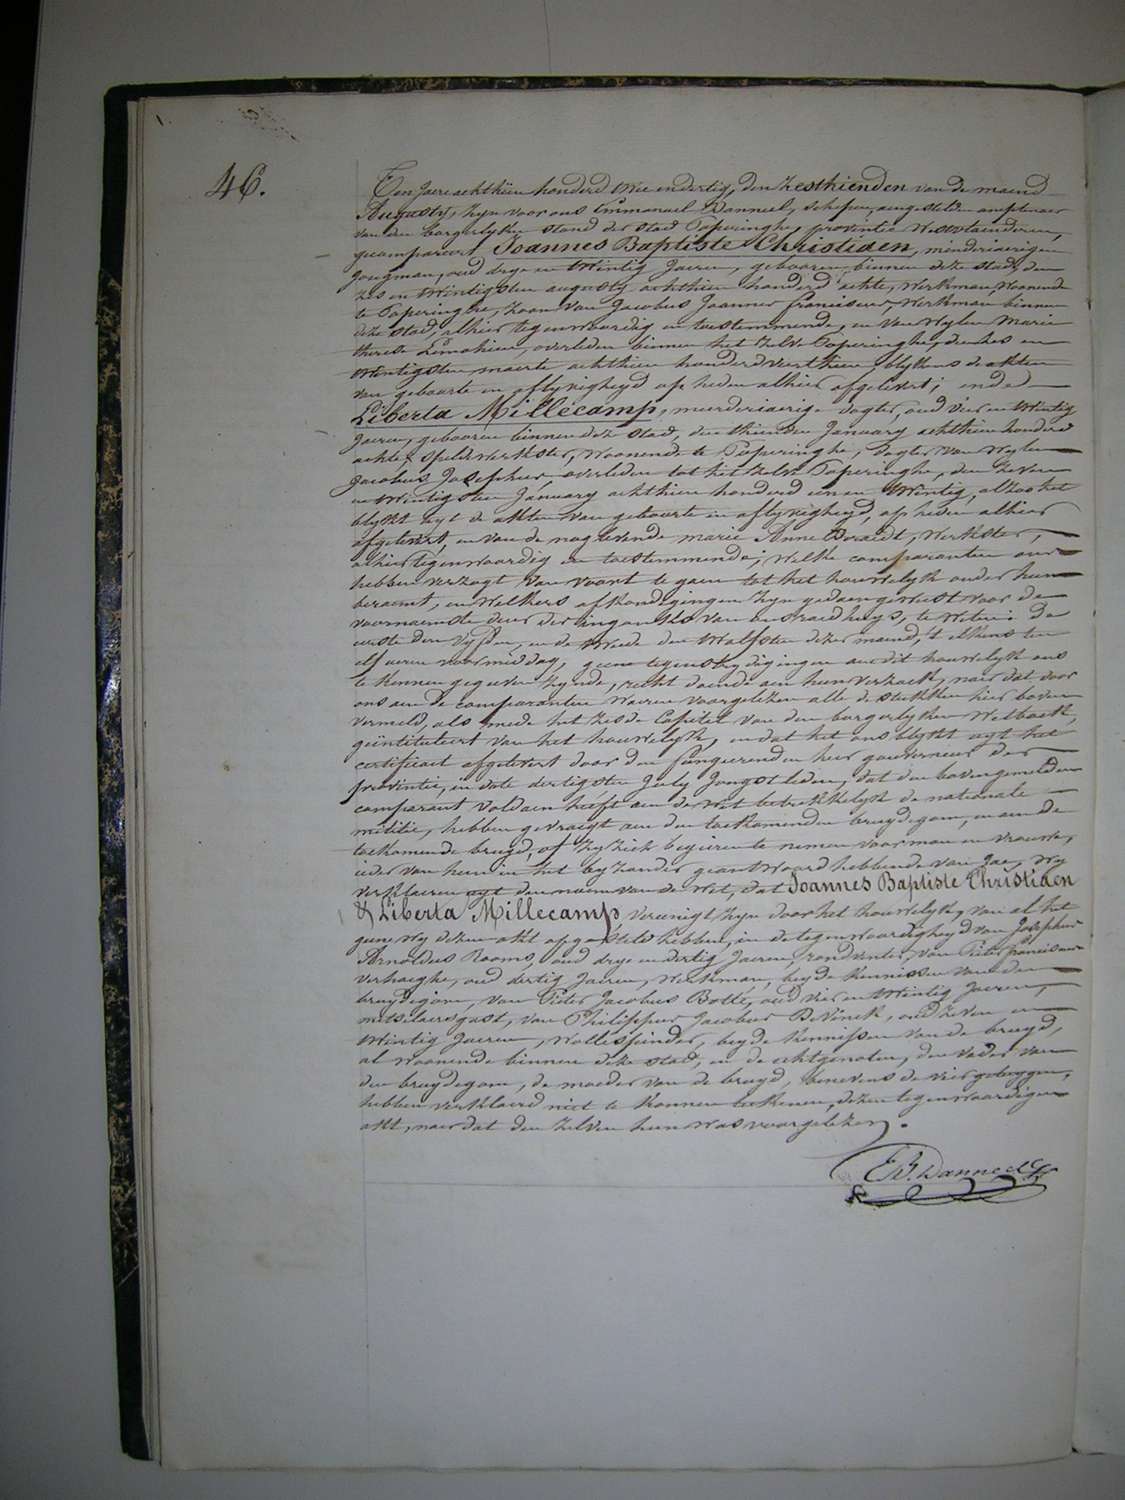 46.
Ten Jaere achthien honderd twee en dertig, den zesthienden van de maend
Augusty, zyn voor ons Emmanuel Danneel, schepen, aengestelden amptenaer
van den borgerlyken stand der stad Poperinghe, provintie Westvlaenderen,
gecompareert Joannes Baptiste Christiaen, minderjaerigen
Jongman, oud drye en twintig Jaeren, gebooren binnen deze stad, den
zes en twintigsten augusty achthien honderd achte, werkman, woonende
te Poperinghe, zoon van Jacobus Joannes franciscus, werkman binnen
deze stad, alhier tegenwoordig en toestemmende, en van wylen Marie
therese Lemahieu, overleden binnen het zelve Poperinghe, den zes en
twintigsten maerte achthien honderd vierthien, blykens de akten
van geboorte en aflyvigheyd op heden alhier afgelevert; ende
Liberta Millecamp, meerderjaerige dogter, oud vier en twintig
Jaeren, gebooren binnen deze stad, den thienden January achthien honderd
achte, speldewerkster, woonende te Poperinghe, dogter van wylen
Jacobus Josephus, overleden tot het zelve Poperinghe, den zeven
en twintigsten January achthien honderd een en twintig, alzoo het
blykt uyt de akten van geboorte en aflyvigheyd, op heden alhier
afgelevert, en van de nog levende marie Anne Boraedt, werkster,
alhier tegenwoordig en toestemmende; welke comparanten ons
hebben verzogt van voort te gaen tot het houwelyk onder hun
beraemt, en welkers afkondigingen zyn gedaen geweest voor de
voornaemste deur der ingang van ons Raedhuys, te weten: de
eerste den vyfden, en de twede den twalfsten dezer maend, t' elkens ten
elf ueren voormiddag, geene tegenstrydigingen aen dit houwelyk ons
te kennen gegeven zynde, recht doende aen hun verzoek, naer dat door
ons aen de comparanten waeren voorgelezen alle de stukken hier boven
vermeld, als mede het zesde Capitel van den borgerlyken Wetboek,
geïntituleert van het houwelyk, en dat het ons blykt uyt het
certificaet afgelevert door den fungeerenden heer gouverneur der
provintie, in date dertigsten July Jongstleden, dat den bovengemelden
comparant voldaen heeft aen de wet betrekkelyk de nationale
militie, hebben gevraegt aen den toekomenden bruydegom, en aen de
toekomende bruyd, of zy zich begeeren te nemen voor man en vrouwe,
ieder van hun in het byzonder geantwoord hebbende van Jae, Wy
verklaeren uyt den naem van de Wet, dat Joannes Baptiste Christiaen
& Liberta Millecamp, vereenigt zyn door het houwelyk, van al het
gene wy dezen akt opgesteld hebben, in de tegenwoordigheyd van Josephus
Arnoldus Rooms, oud drye en dertig Jaeren, rondventer, van Pieter franciscus
verhaeghe, oud dertig Jaeren, werkman, beyde kennissen van den
bruydegom, van Pieter Jacobus Botté, oud vier en twintig Jaeren,
metselaersgast, van Philippus Jacobus DeVinck, oud zeven en
twintig Jaeren, wollespinder, beyde kennissen van de bruyd,
al woonende binnen deze stad; en de echtgenoten, den vader van
den bruydegom, de moeder van de bruyd, benevens de vier getuygen,
hebben verklaerd niet te konnen teekenen, dezen tegenwoordigen
akt, naer dat den zelven hun was voorgelezen.
EB. Danneel